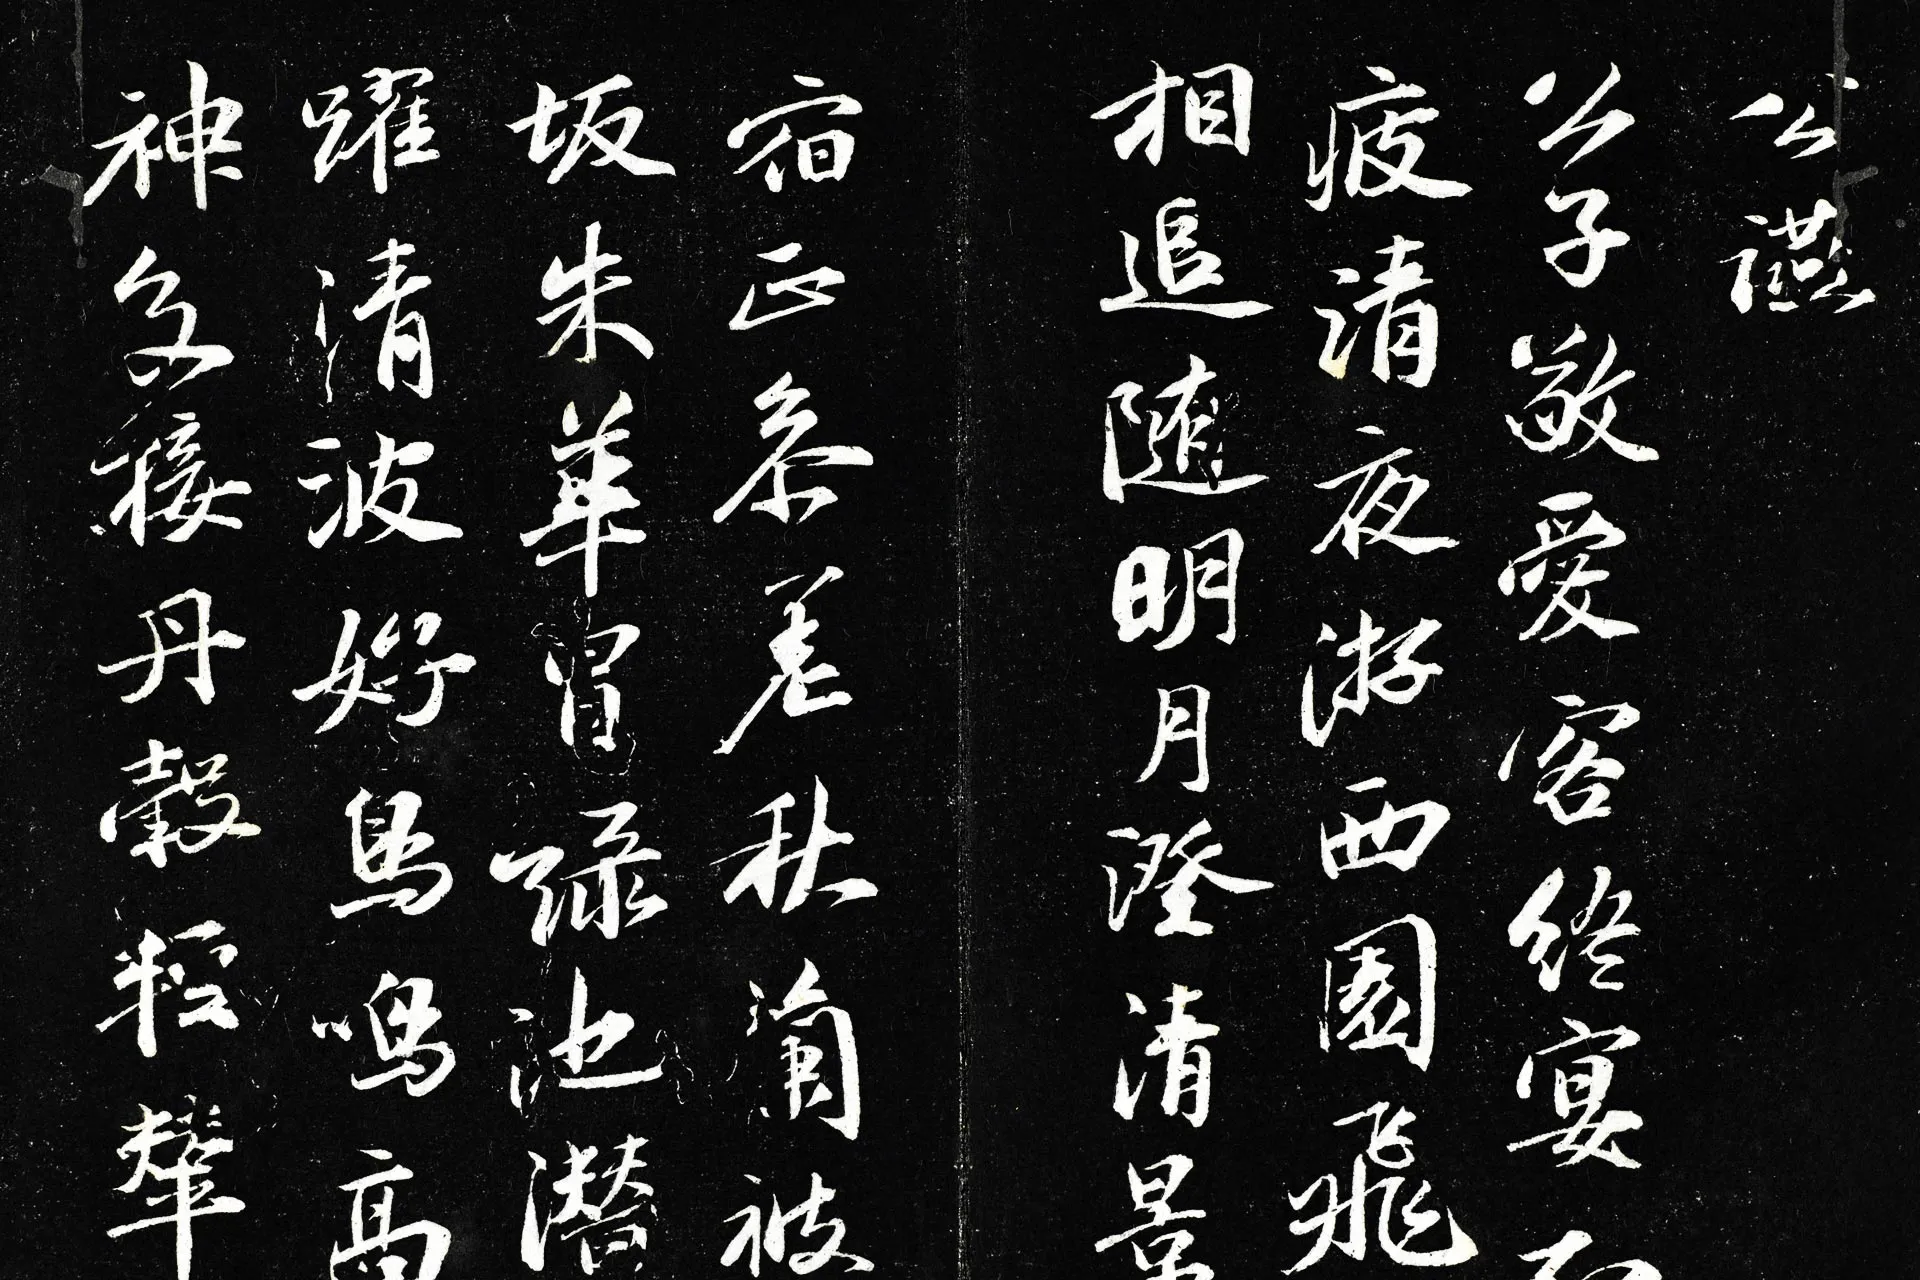 公讌
公子敬愛客終宴
疲清夜游西園飛
相追隨明月澄清景
宿正參差秋蘭被
坂朱華冒綠池潛
躍清波好鳥鳴高
神接丹轂輕輦